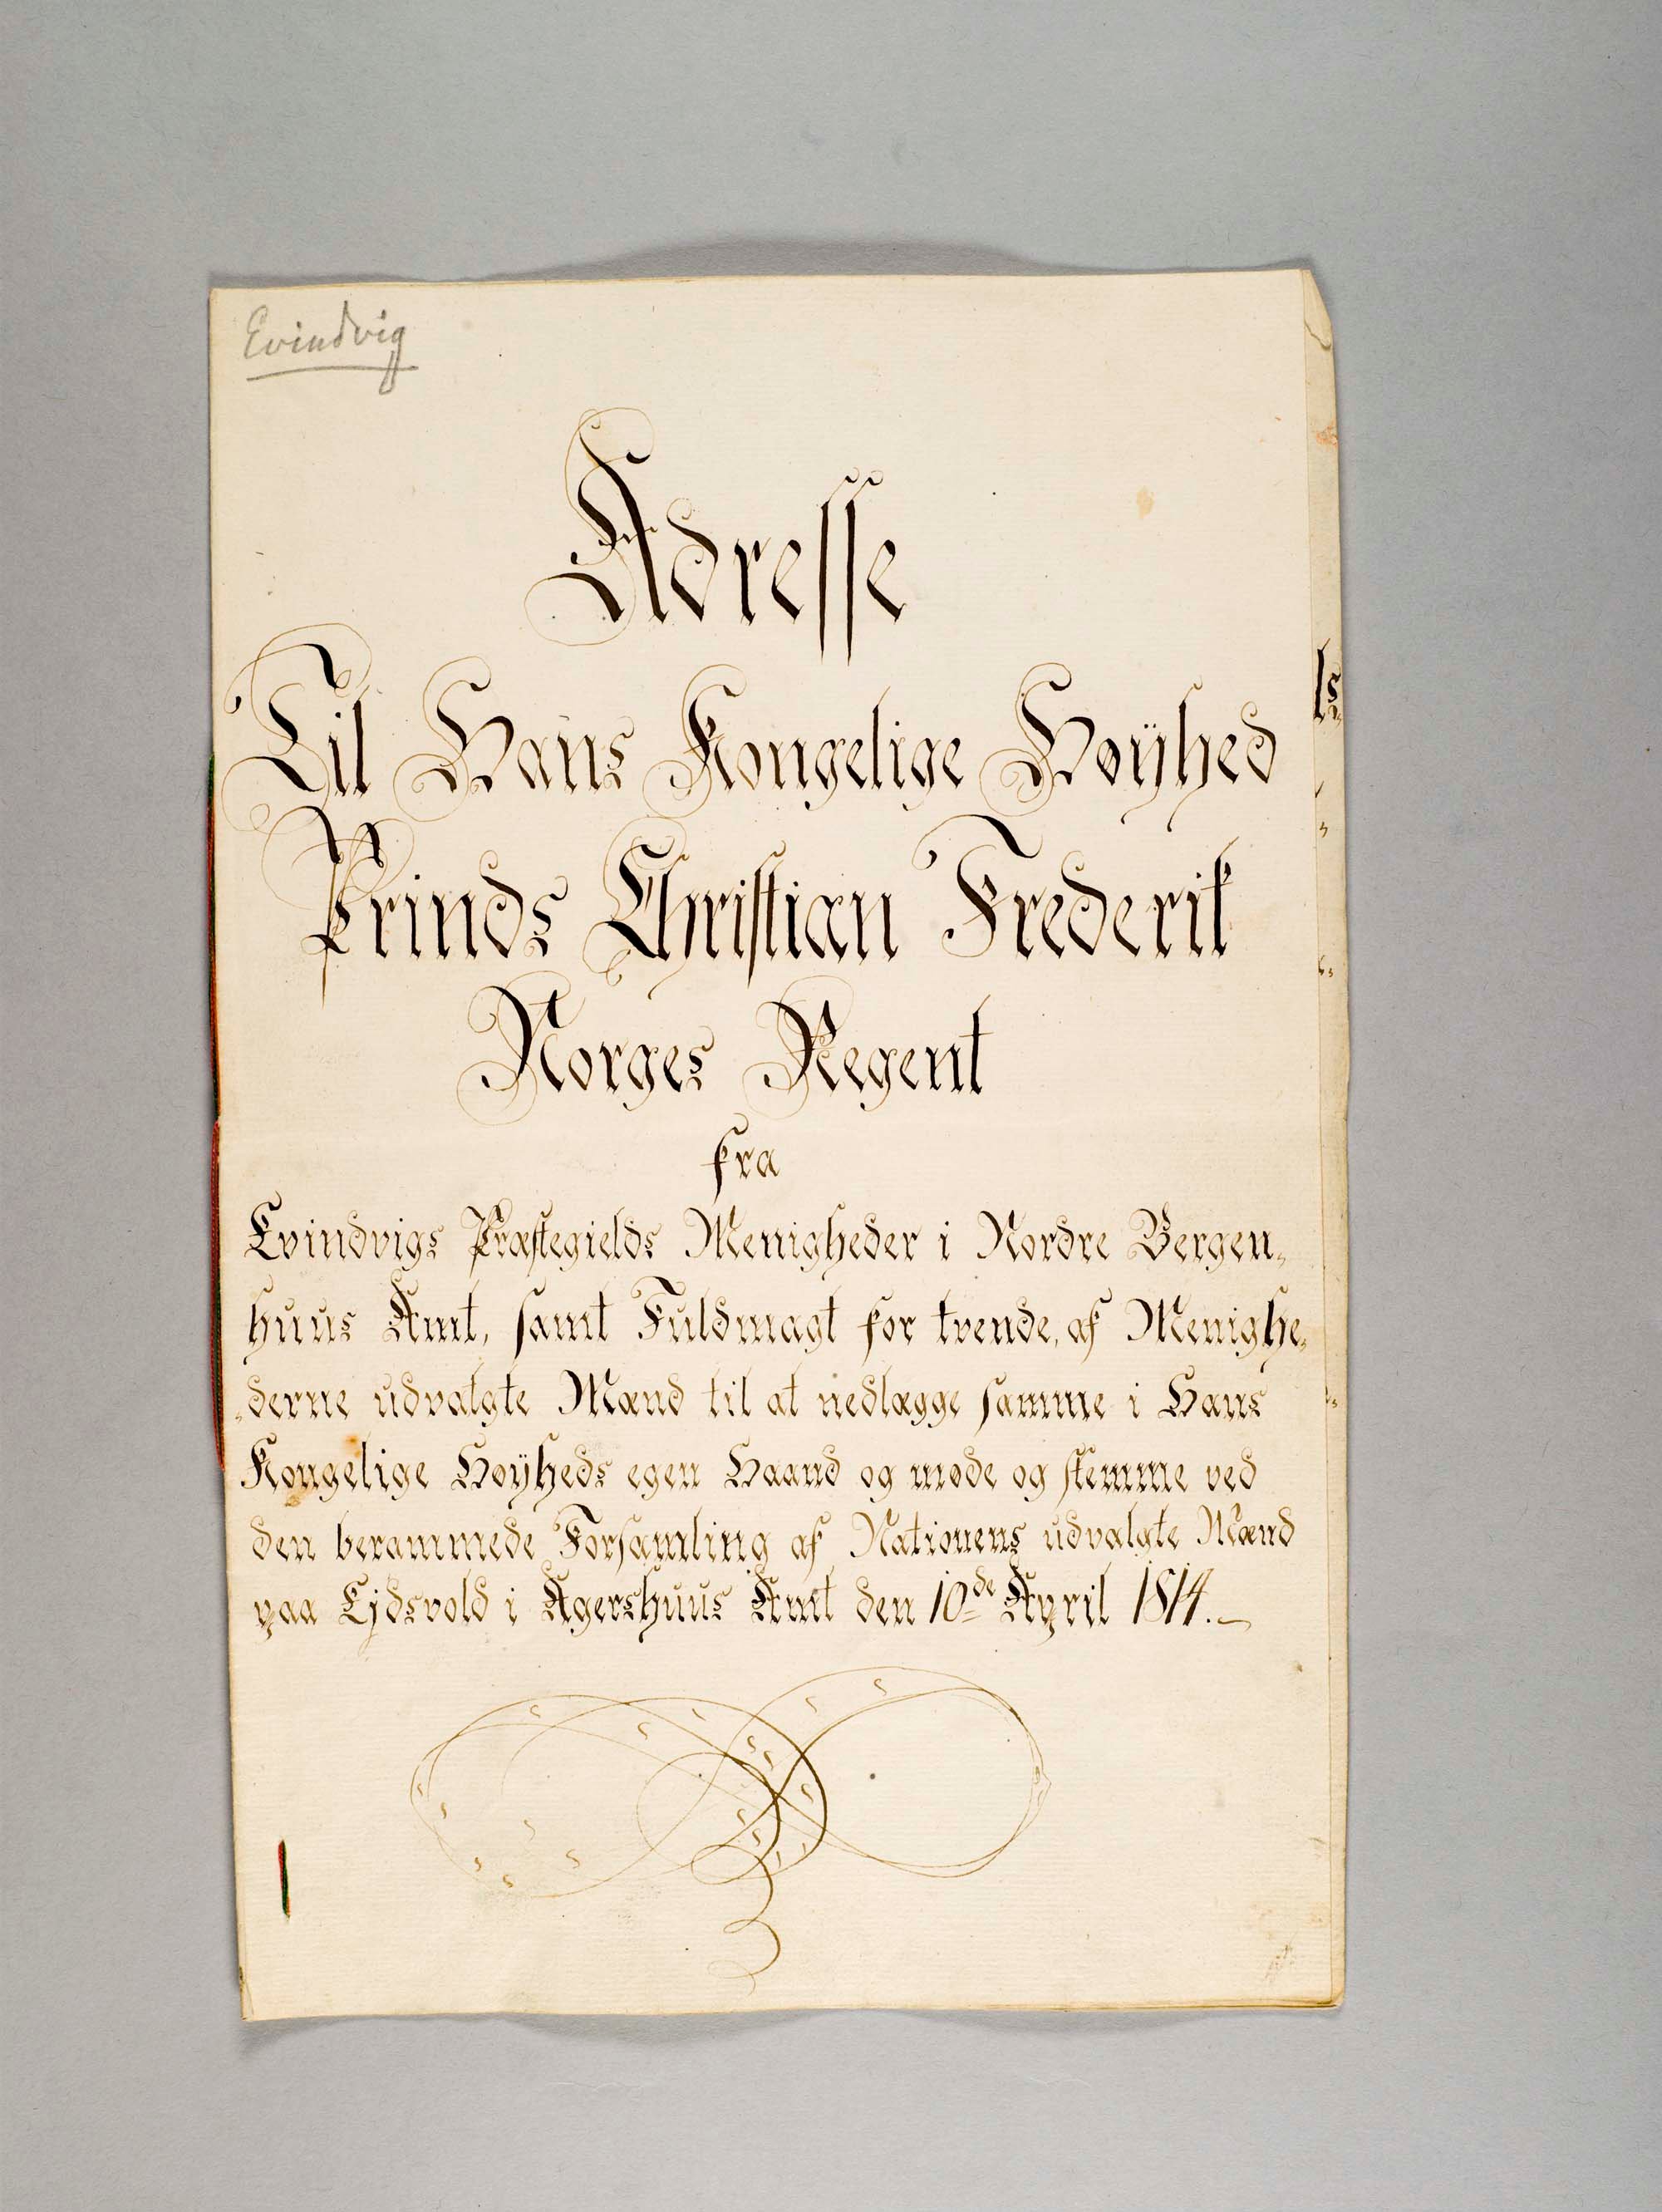 Evindvig
Adresse
Til Hans Kongelige Høÿhed
Prinds Christian Frederik
Norges Regent
fra
Evindvigs Præstegields Menigheder i Nordre Bergen„
huus Amt, samt Fuldmagt for tvende, af Menighe„
„derne udvalgte Mænd til at nedlægge samme i Hans
Kongelige Høÿheds egen Haand og møde og stemme ved
den berammede Forsamling af Nationens udvalgte Mænd
paa Ejdsvold i Agershuus Amt den 10de April 1814.